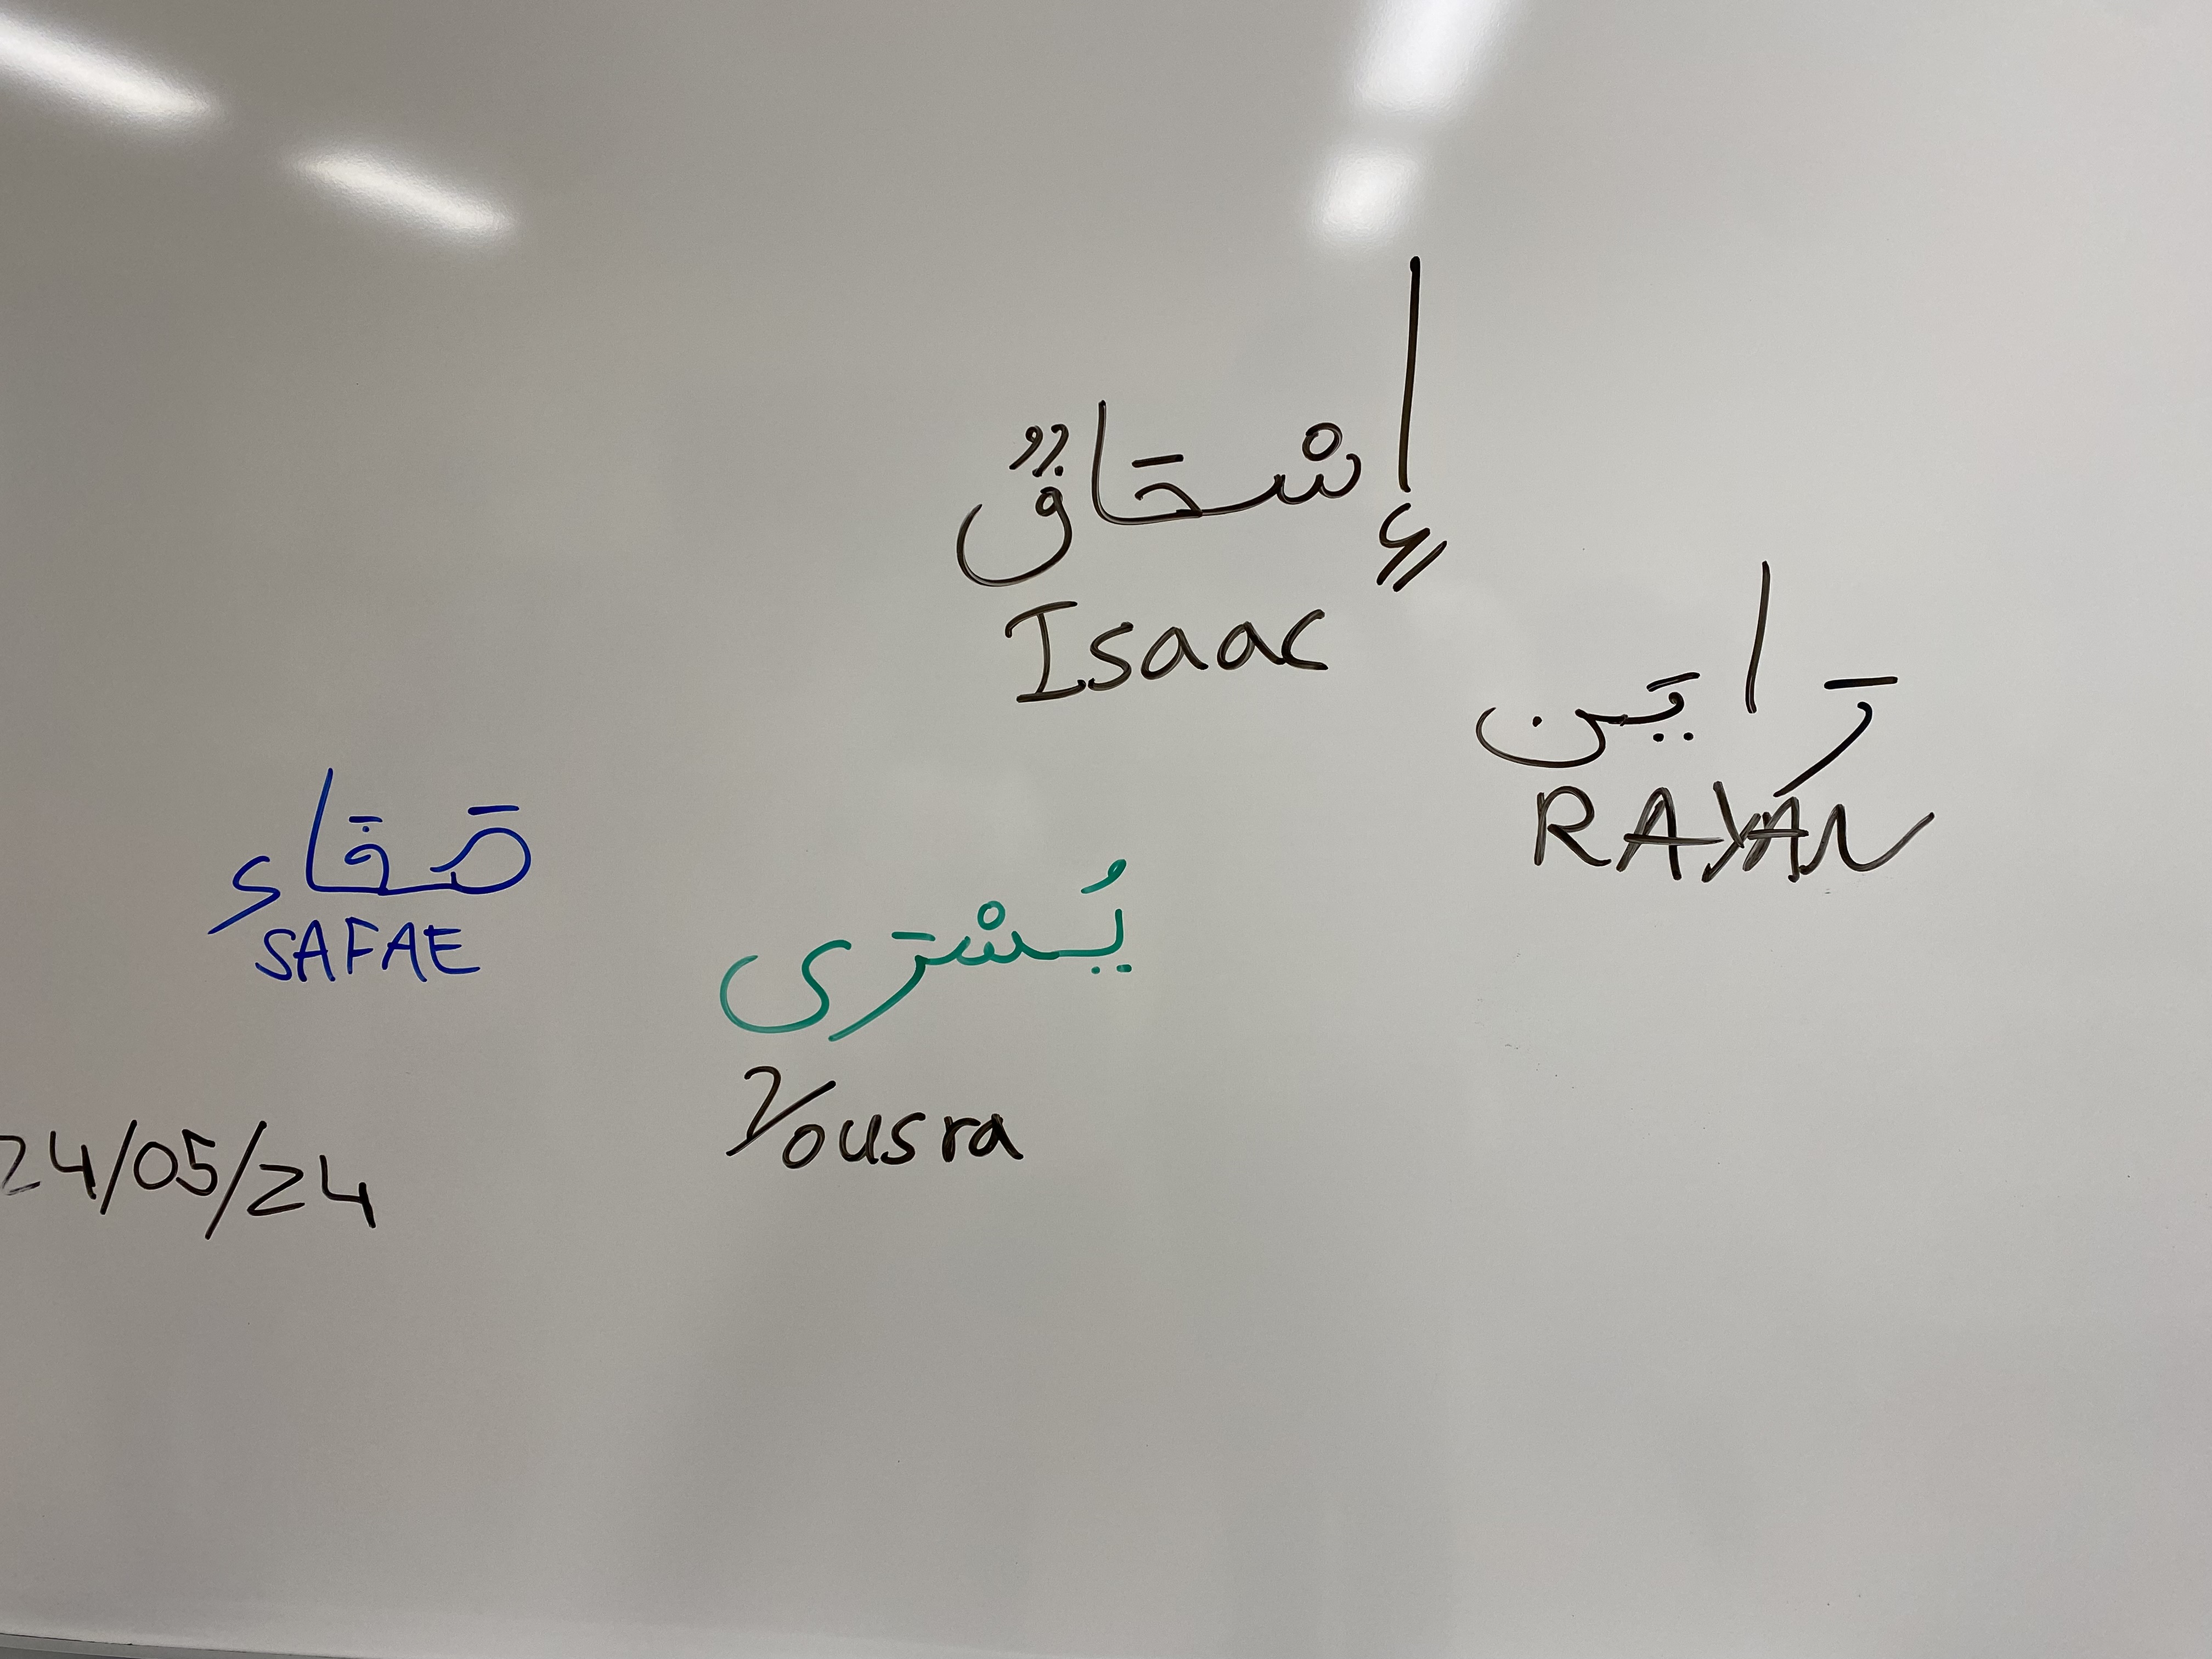 إِسْحَاقٌ
Isaac
رَايَن
RAYAN
صَفَاء
SAFAE
يُسْرَى
Yousra
24/05/24